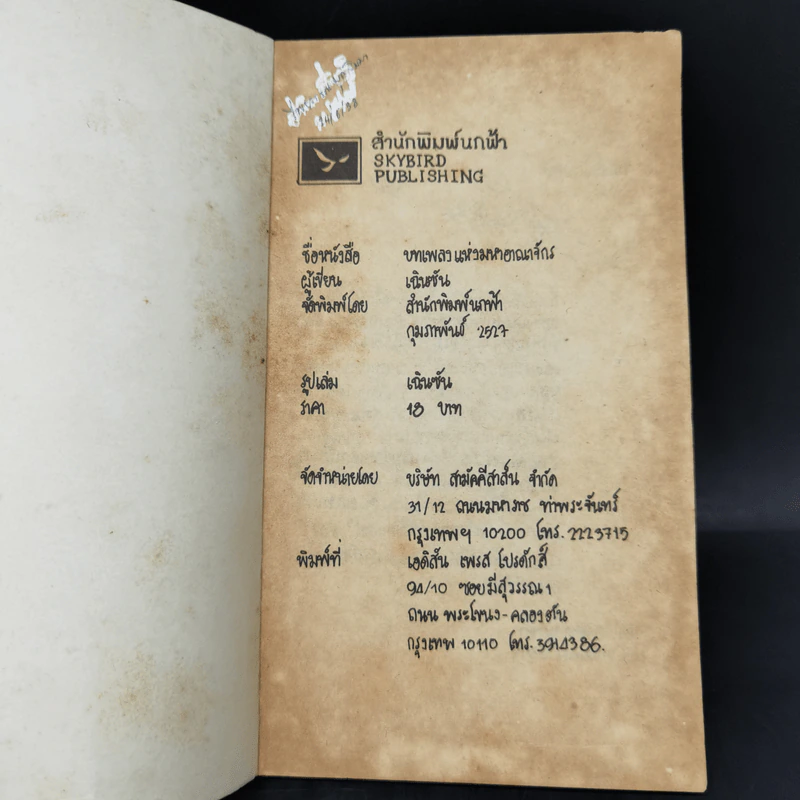 สำนักพิมพ์นกฟ้า
SKYBIRD
PUBLISHING
ชื่อหนังสือ บทเพลงแห่งมหาอาณาจักร
ผู้เขียน เฉินซัน
จัดพิมพ์โดย สำนักพิมพ์นกฟ้า
กุมภาพันธ์ 2527
รูปเล่ม เฉินซัน
ราคา 18 บาท
จัดจำหน่ายโดย บริษัท สามัคคีสาส์น จำกัด
31/12 ถนนมหาราช ท่าพระจันทร์
กรุงเทพฯ 10200 โทร. 2223715
พิมพ์ที่ เอดิสัน เพรส โปรดักส์
94/10 ซอยมีสุวรรณ 1
ถนน พระโขนง-คลองตัน
กรุงเทพ 10110 โทร. 3914386.